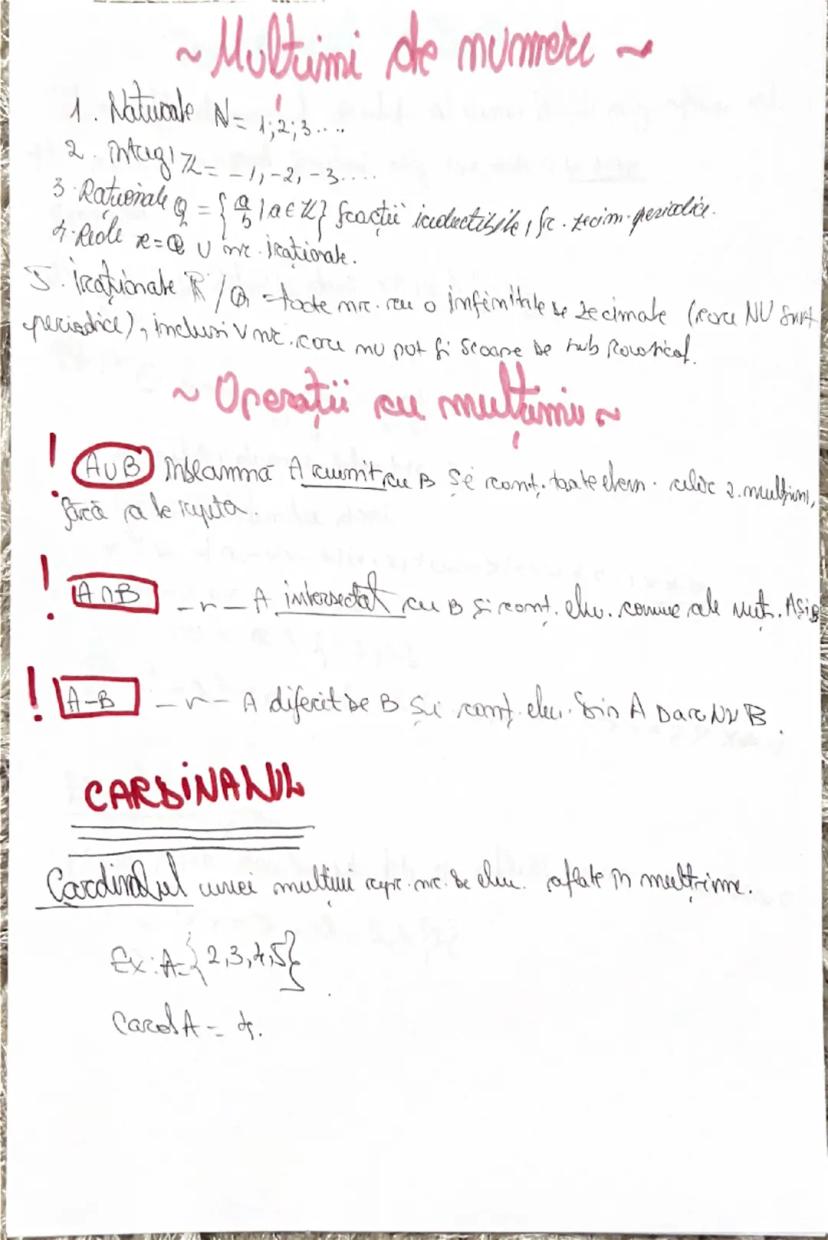 ~ Multimi de numere ~
1. Naturale N = 1; 2; 3....
2. Intregi Z = -1, -2, -3....
3. Rationale Q = { a/b | a ∈ Z } fractii ireductibile, fr. zecim. periodice.
4. Reale R = Q ∪ nr. irationale.
5. Iraționale R / Q = toate nr. cu o infinitate de zecimale (care NU sunt
periodice), inclusiv nr. care nu pot fi scoase de sub Radical.
~ Operații cu mulțimi ~
! A∪B inseamnă A reunit cu B și conț. toate elem. celor 2 mulțimi,
fără a le repeta.
! A∩B -"- A intersectat cu B și conț. elem. comune ale mulț. A și B
! A-B -"- A diferit de B și conț. elem. din A Dar NU B.
CARDINALUL
Cardinalul unei mulțimi repr. nr. de elem. aflate în mulțime.
Ex: A={2,3,4,5}
Card A = 4.